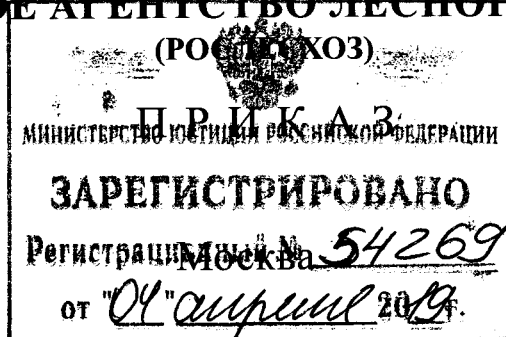 Е АГЕНТСТВО ЛЕСНОГ
(РОСЛЕСХОЗ)
ПРИКАЗ
МИНИСТЕРСТВО ЮСТИЦИИ РОССИЙСКОЙ ФЕДЕРАЦИИ
ЗАРЕГИСТРИРОВАНО
Регистрационный № 54269
Москва
от "04" апреля 2019г.